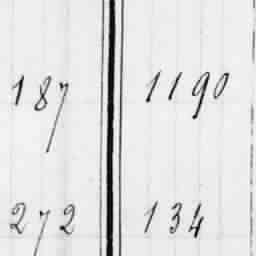 187 1190
272 134